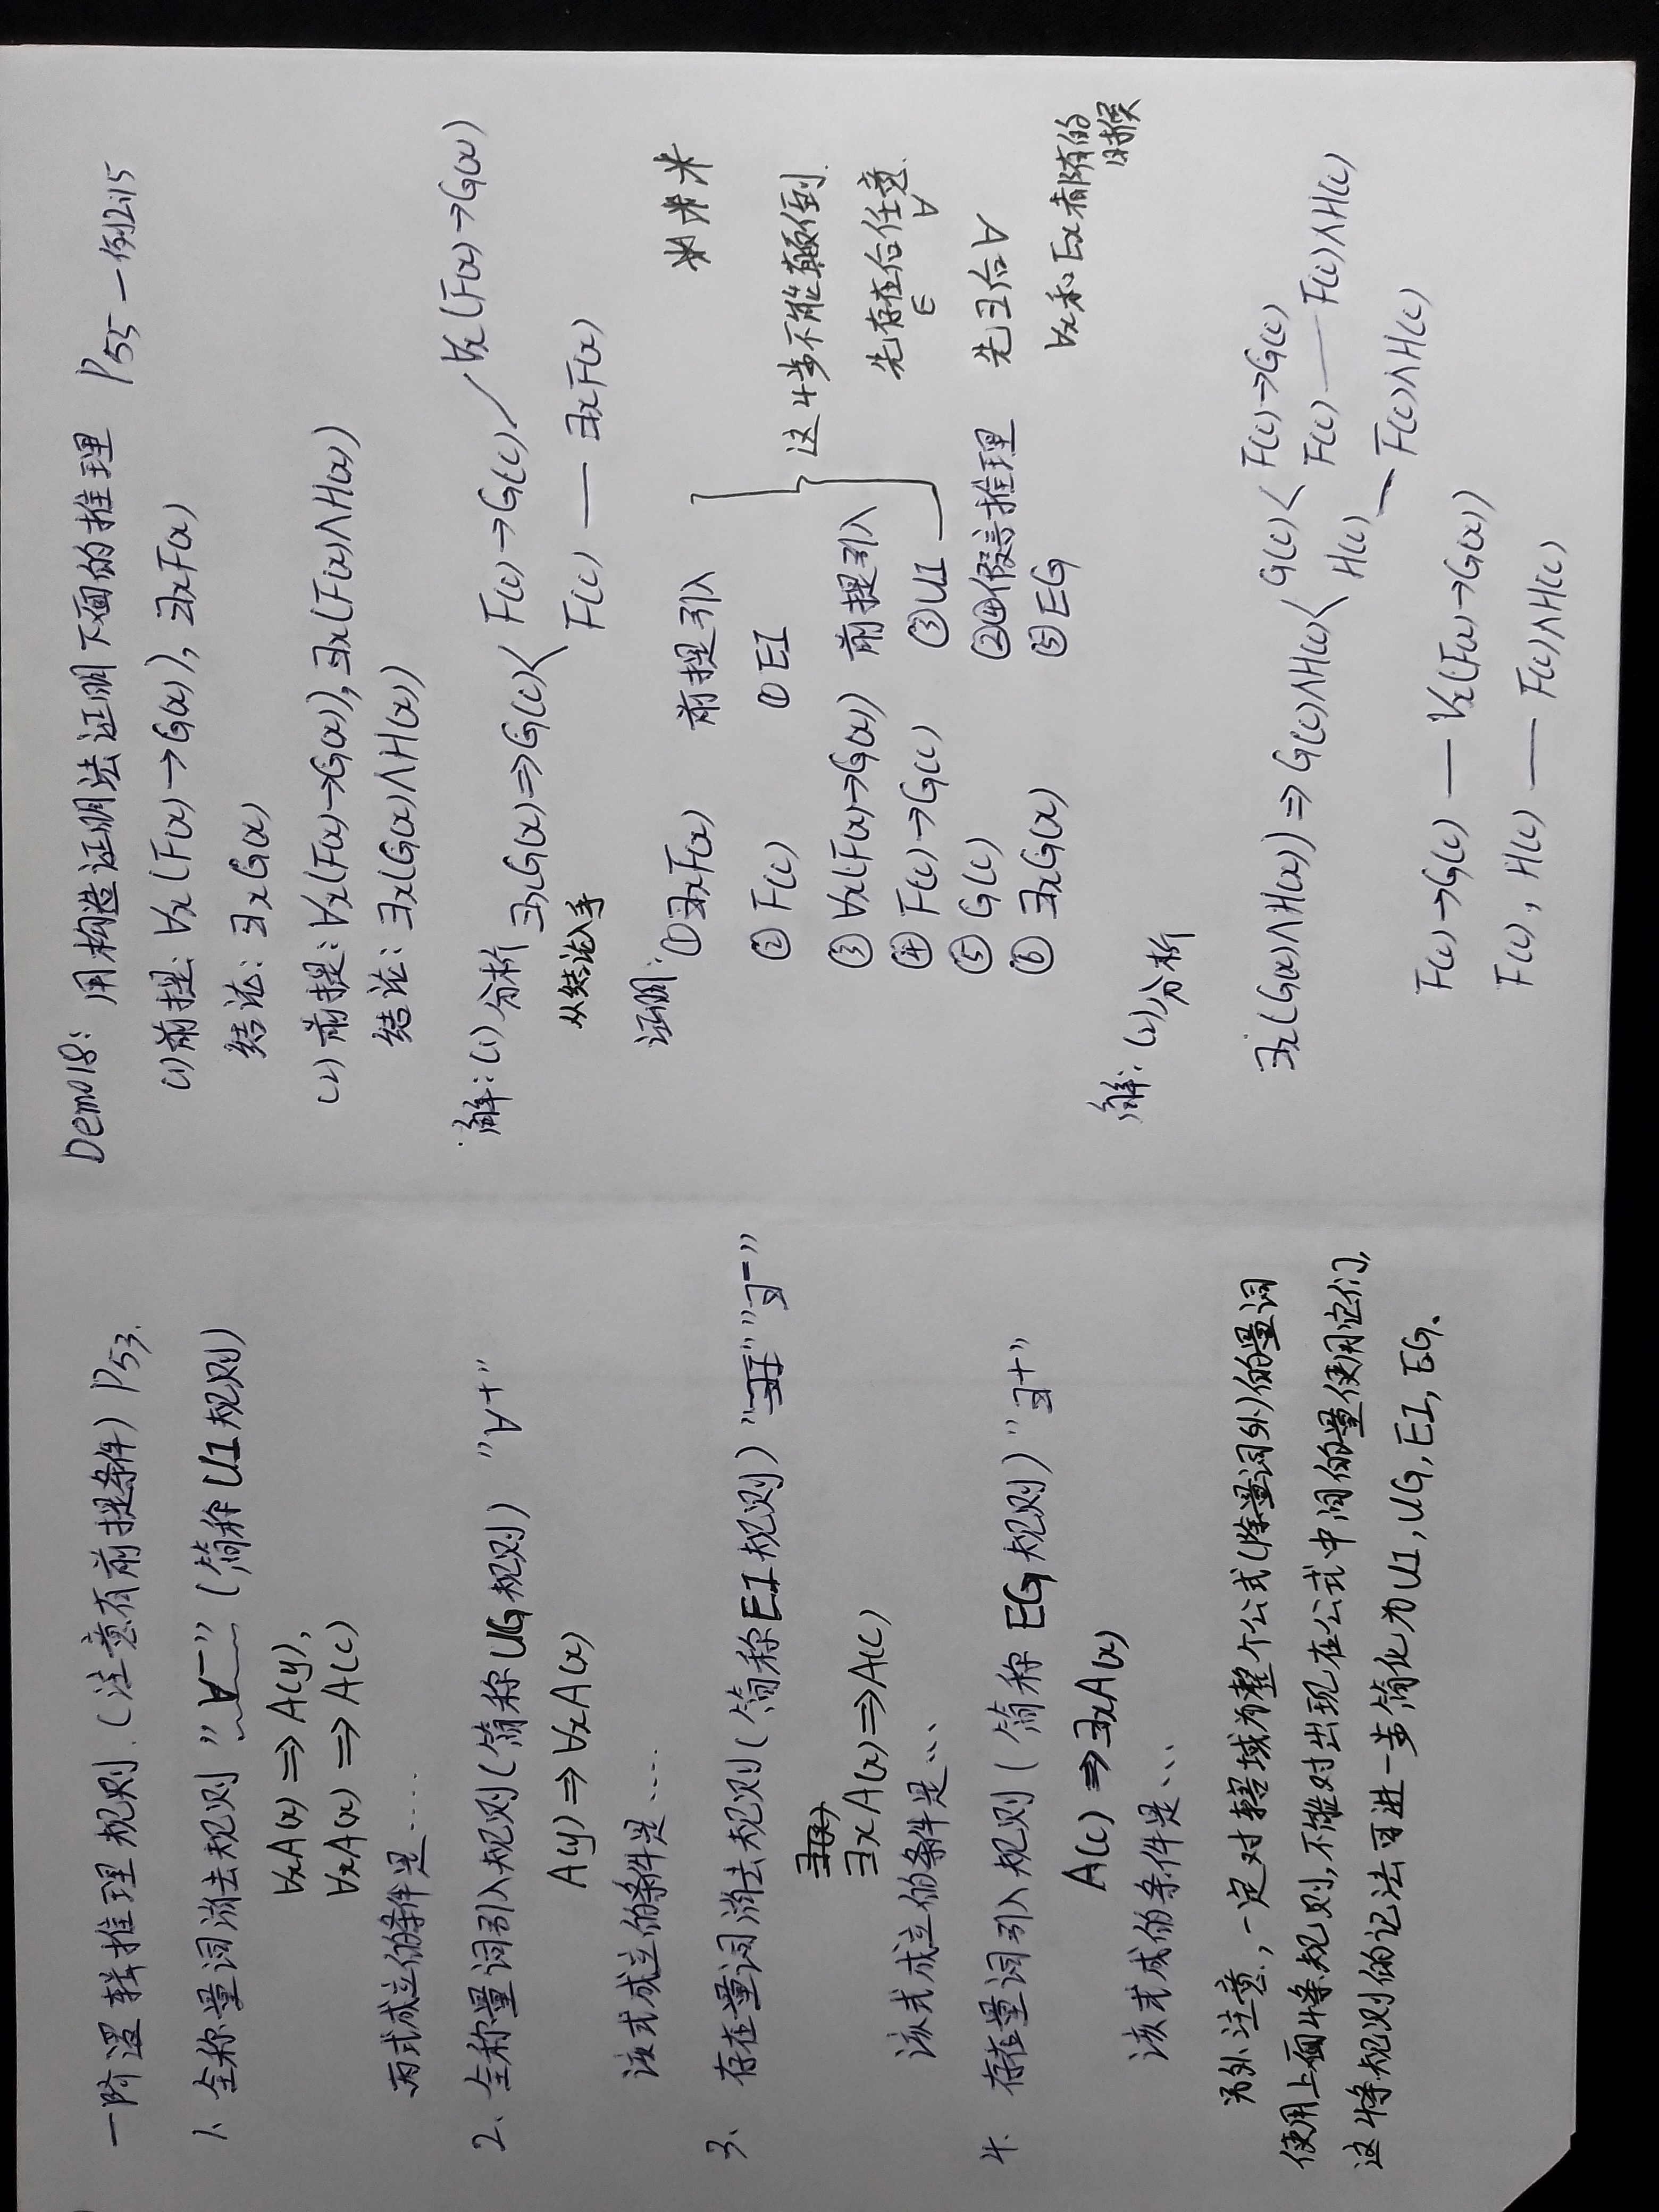 一阶逻辑推理规则.(注意有前提条件) P53.
1、全称量词消去规则 "∀⁻" (简称UI规则)
∀xA(x) ⇒ A(y),
∀xA(x) ⇒ A(c)
两式成立的条件是....
2、全称量词引入规则(简称UG规则) "∀⁺"
A(y) ⇒ ∀xA(x)
该式成立的条件是....
3、存在量词消去规则(简称EI规则) "∃⁻"
∃xA(x) ⇒ A(c)
该式成立的条件是...
4、存在量词引入规则(简称EG规则) "∃⁺"
A(c) ⇒ ∃xA(x)
该式成的条件是...
另外注意,一定对辖域为整个公式(除量词外)的量词
使用上面4条规则,不能对出现在公式中间的量使用它们,
这4条规则的记法可进一步简化为UI,UG,EI,EG。
Demo18: 用构造证明法证明下面的推理 P55—例2.15
(1)前提: ∀x(F(x)→G(x)), ∃xF(x)
结论: ∃xG(x)
(2)前提: ∀x(F(x)→G(x)), ∃x(F(x)∧H(x))
结论: ∃x(G(x)∧H(x))
解:(1) 分析 ∃xG(x)⇒G(c) < F(c)→G(c) / ∀x(F(x)→G(x))
F(c) — ∃xF(x)
从结论入手
证明:
①∃xF(x) 前提引入
② F(c) ①EI
③ ∀x(F(x)→G(x)) 前提引入
④ F(c)→G(c) ③UI
⑤ G(c) ②④假言推理
⑥ ∃xG(x) ⑤EG
***
这4步不能颠倒.
先存在后任意.
∃ ∀
先∃后∀
∀x和Ex都有的
时候
解:(2)分析
∃x(G(x)∧H(x)) ⇒ G(c)∧H(c) < G(c) < F(c)→G(c)
F(c) — F(c)∧H(c)
H(c) — F(c)∧H(c)
F(c)→G(c) — ∀x(F(x)→G(x))
F(c), H(c) — F(c)∧H(c)